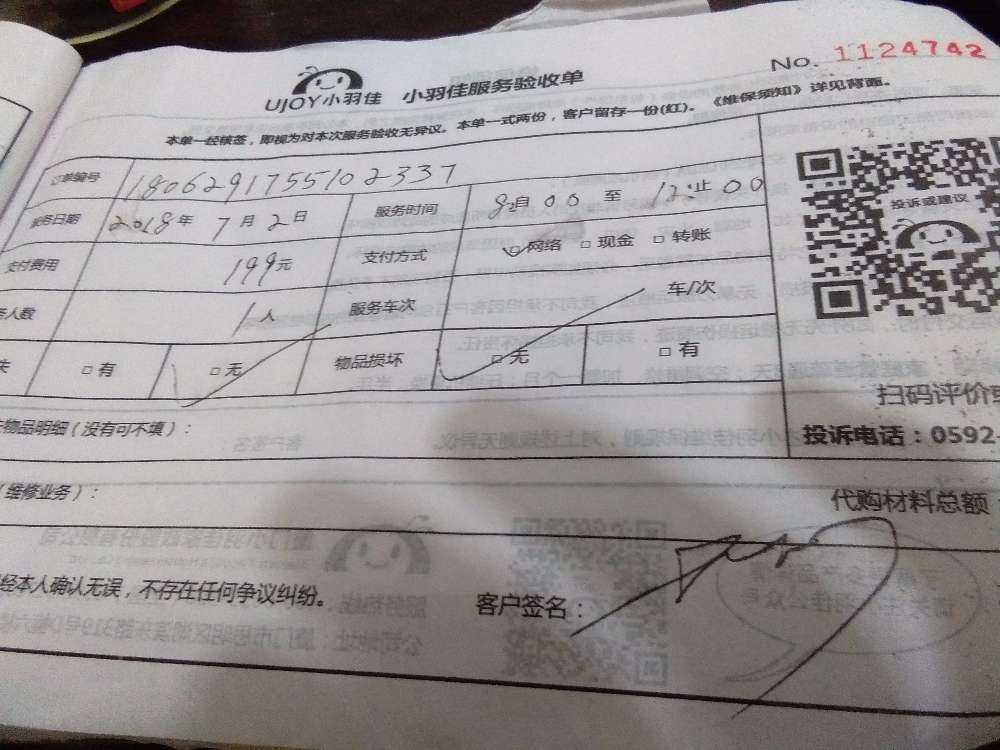 No. 1124742
UJOY小羽佳 小羽佳服务验收单
本单一经核签，即视为对本次服务验收无异议。本单一式两份，客户留存一份(红)。《维保须知》详见背面。
订单编号 1806291755102337
服务日期 2018年 7月 2日 服务时间 8:00 至 12:00 止
支付费用 199元 支付方式 ☑网络 □现金 □转账
务人数 1人 服务车次 车/次
失 □有 □无 物品损坏 □无 □有
投诉或建议
扫码评价
物品明细（没有可不填）：
投诉电话：0592
（维修业务）：
代购材料总额
经本人确认无误，不存在任何争议纠纷。
客户签名：